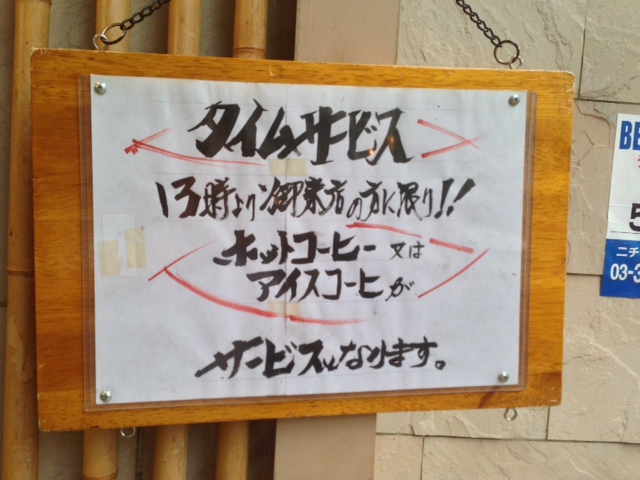 タイムサービス
13時より御来店の方に限り!!
ホットコーヒー又は
アイスコーヒーが
サービスとなります。
BE
5
ニチ
03-3